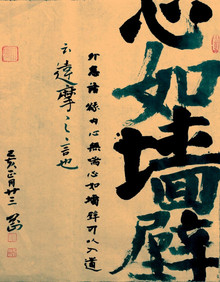 心如墙面壁
外息諸緣内心無喘心如墙壁可以入道
云達摩之言也
乙亥正月廿三